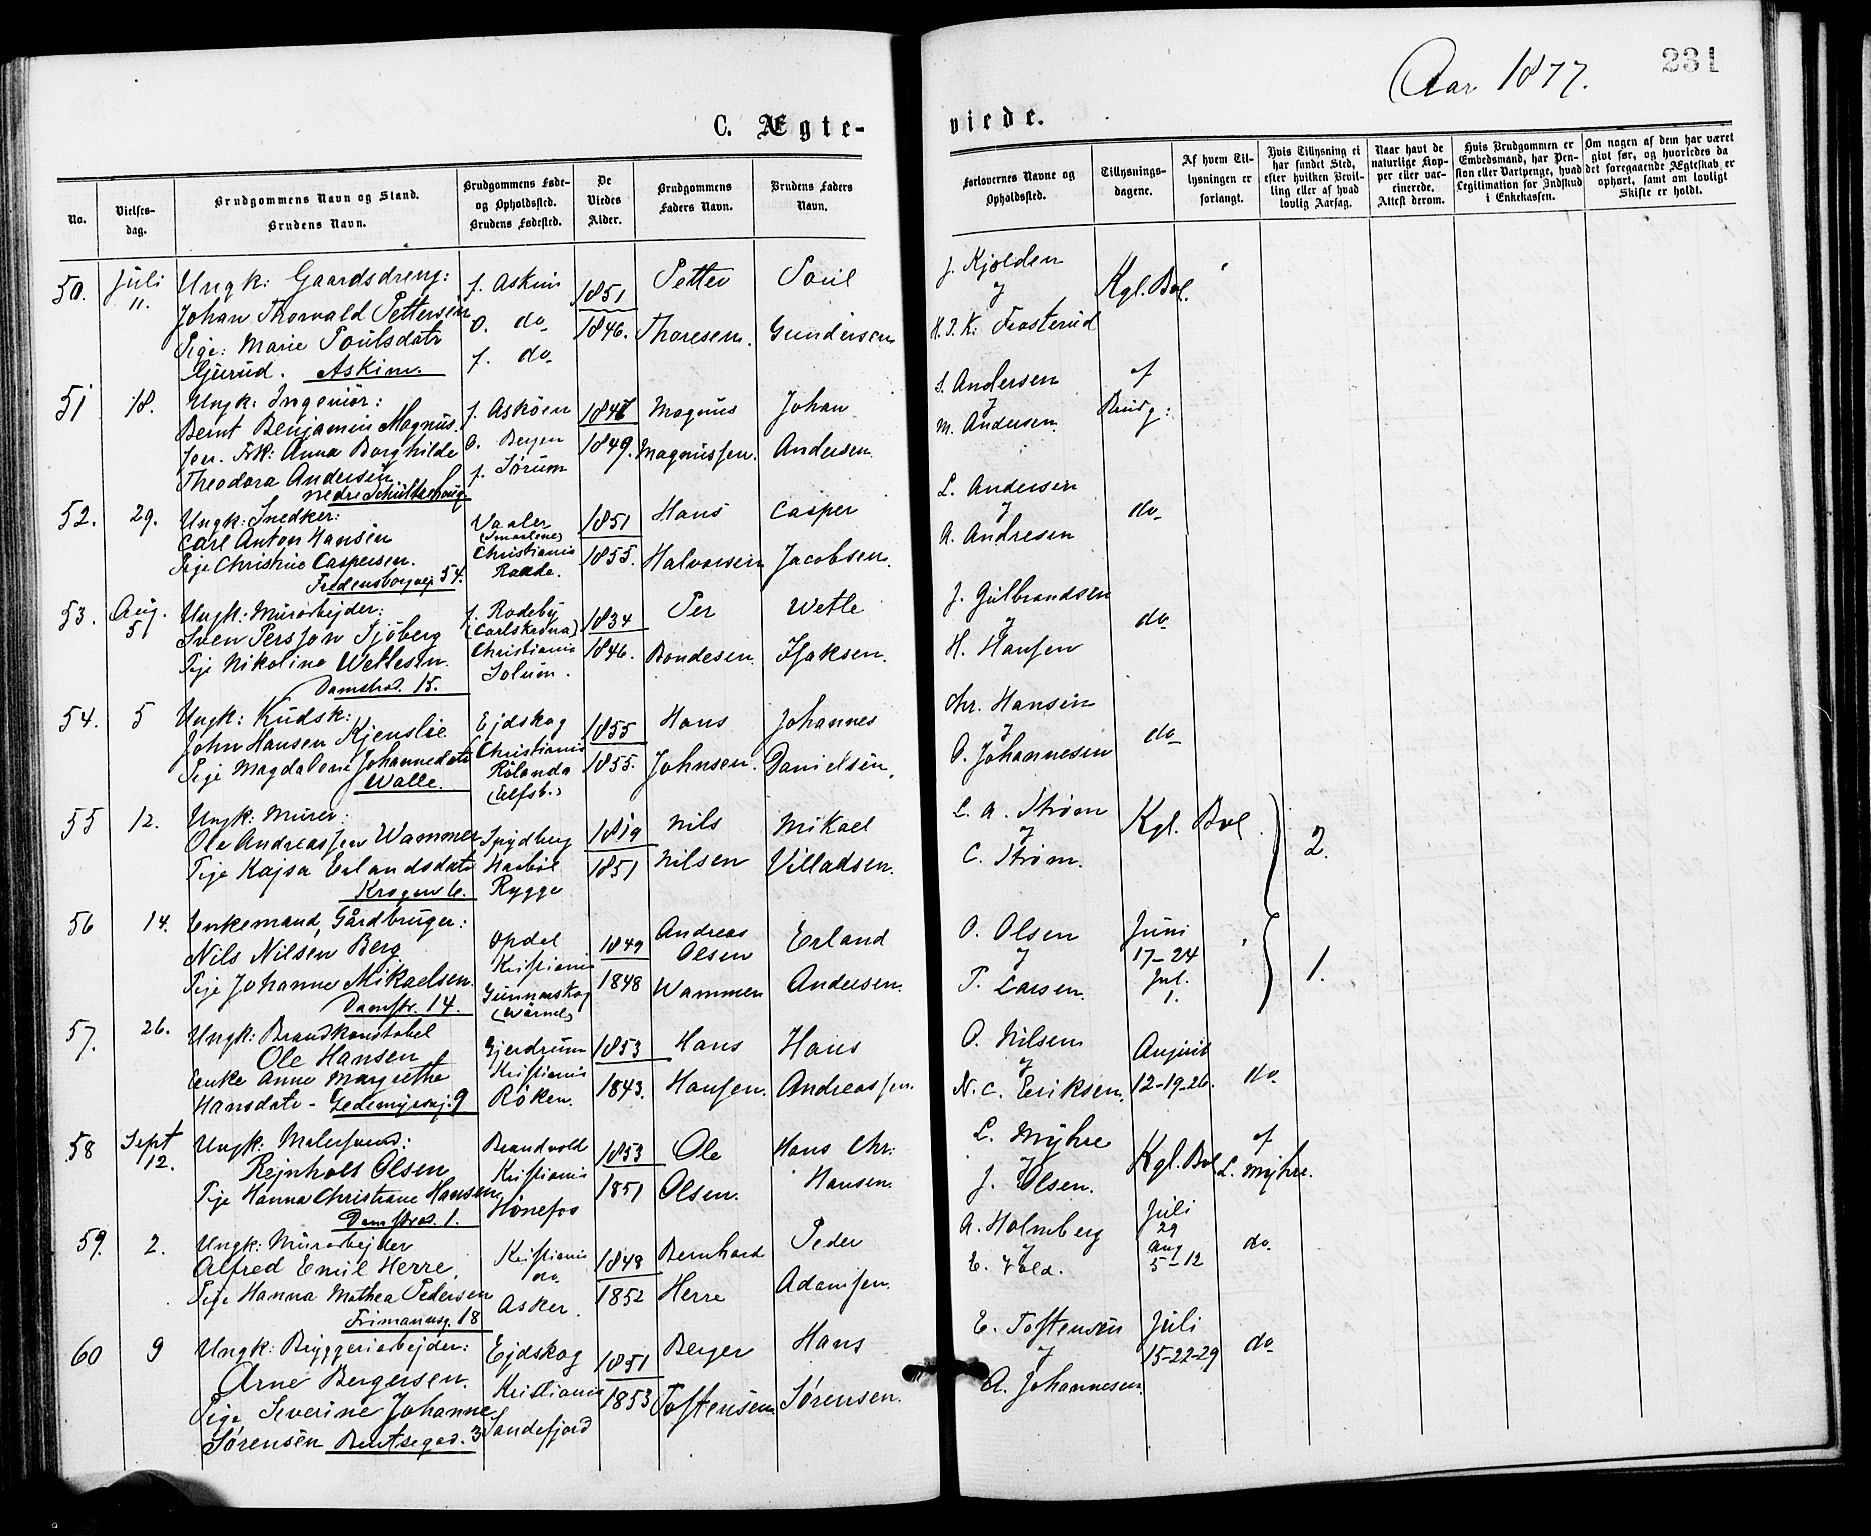 Aar 1877.
231
C. Ægte-
viede.
No.
Vielses-
dag.
Brudgommens Navn og Stand.
Brudens Navn.
Brudgommens Føde-
og Opholdssted.
Brudens Fødested.
De
Viedes
Alder.
Brudgommens
Faders Navn.
Brudens Faders
Navn.
Forlovernes Navne og
Opholdssted.
Tillysnings-
dagene.
Af hvem Til-
lysningen er
forlangt.
Hvis Tillysning ei
har fundet Sted,
efter hvilken Bevil-
ling eller af hvad
lovlig Aarsag.
Naar havt de
naturlige Kop-
per eller vac-
cinerede.
Attest derom.
Hvis Brudgommen er
Embedsmand, har Pen-
sion eller Vartpenge, hvad
Legitimation for Indskud
i Enkekassen.
Om nogen af dem har været
givt før, og hvorledes da
det foregaaende Ægteskab er
ophørt, samt om lovligt
Skifte er holdt.
50.
Juli
11.
Ungk: Gaardsdreng:
Johan Thorvald Pettersen
Pige: Marie Poulsdatr
Gjurud. Askim.
f. Askim
o. do
f. do
1851
1846.
Petter
Thoresen.
Poul
Gundersen
J. Kjølden
H. J. K. Frosterud
Kgl. Bvl.
51
18.
Ungk: Ingeniør:
Bernt Benjamin Magnus-
sen. Frk: Anna Borghilde
Theodora Andersen
nedre Schultzehoug
f. Askøen
o. Bergen
f. Sørum
1847
1849.
Magnus
Magnussen.
Johan
Andersen.
S. Andersen
M. Andersen.
af
Brudg:
52.
29.
Ungk: Snedker:
Carl Anton Hansen
Pige Christine Caspersen.
Fredensborgvej 54.
Vaaler
(Smaalene)
Christiania
Raade.
1851
1855.
Hans
Halvorsen
Casper
Jacobsen.
L. Andersen
A. Andresen
do
53.
Aug.
5
Ungk: Murarbejder:
Sven Persson Sjöberg
Pige Nikoline Wettesen.
Damstrad. 15.
f. Rodeby
(Carlskrona)
Christiania
Solum.
1834
1846.
Per
Bondesen.
Wetle
Isaksen.
J. Gulbrandsen
H. Hansen
do
54.
5
Ungk: Kudsk:
John Hansen Kjenslie
Pige Magdalene Johannesdatr
Walle.
Ejdskog
Christiania
Rölanda
(Elfsb.)
1855
1855.
Hans
Johnsen.
Johannes
Danielsen.
Chr. Hansen
O. Johannesen
do
55
12.
Ungk: Murer:
Ole Andreassen Wammer
Pige Kajsa Erlandsdatr
Krogen 6.
Spydberg
Haabøl
Rygge
1819
1851
Nils
Nilsen
Mikael
Villadsen.
L. A. Strøm
C. Strøm.
Kgl. Bvl.
2.
56
14.
Enkemand, Gårdbruger:
Nils Nilsen Berg
Pige Johanne Mikaelsen.
Damstr. 14.
Opdal
Kristiania
Gunnarskog
(Wärmel)
1849
1848
Andreas
Olsen
Wammer
Erland
Andersen.
O. Olsen
P. Larsen.
Juni
17-24
Jul.
1.
1.
57.
26.
Ungk: Brandkonstabel
Ole Hansen
Enke Anne Margrethe
Hansdatr - Gedemyrsvej. 9
Gjerdrum
Kristiania
Röken.
1853
1843.
Hans
Hansen.
Hans
Andreassen.
O. Nilsen
N. C. Eriksen.
August
12-19-26.
do
58
Sept
12.
Ungk: Malersvend:
Rejnholt Olsen
Pige Hanna Christiane Hansen
Damstrad. 1.
Brandvold
Kristiania
Hønefos
1853
1851
Ole
Olsen.
Hans Chr:
Hansen.
L. Myhre
J. Olsen.
Kgl. Bvl
af
L. Myhre.
59.
2.
Ungk: Murarbejder
Alfred Emil Herre.
Pige Hanna Mathea Pedersen
Frimannsg. 18
Kristiania
do.
Asker.
1848
1852
Bernhard
Herre
Peder
Adamsen.
A. Holmberg
E. Vold.
Juli
29
Aug
5-12
do.
60
9
Ungk: Bryggeriarbejder:
Arne Bergersen.
Pige Severine Johanne
Sørensen Bentsegad. 3
Ejdskog
Kristiania
Sandefjord
1851
1853
Berger
Toftensen
Hans
Sørensen.
E. Toftensen
A. Johannesen.
Juli
15-22-29
do